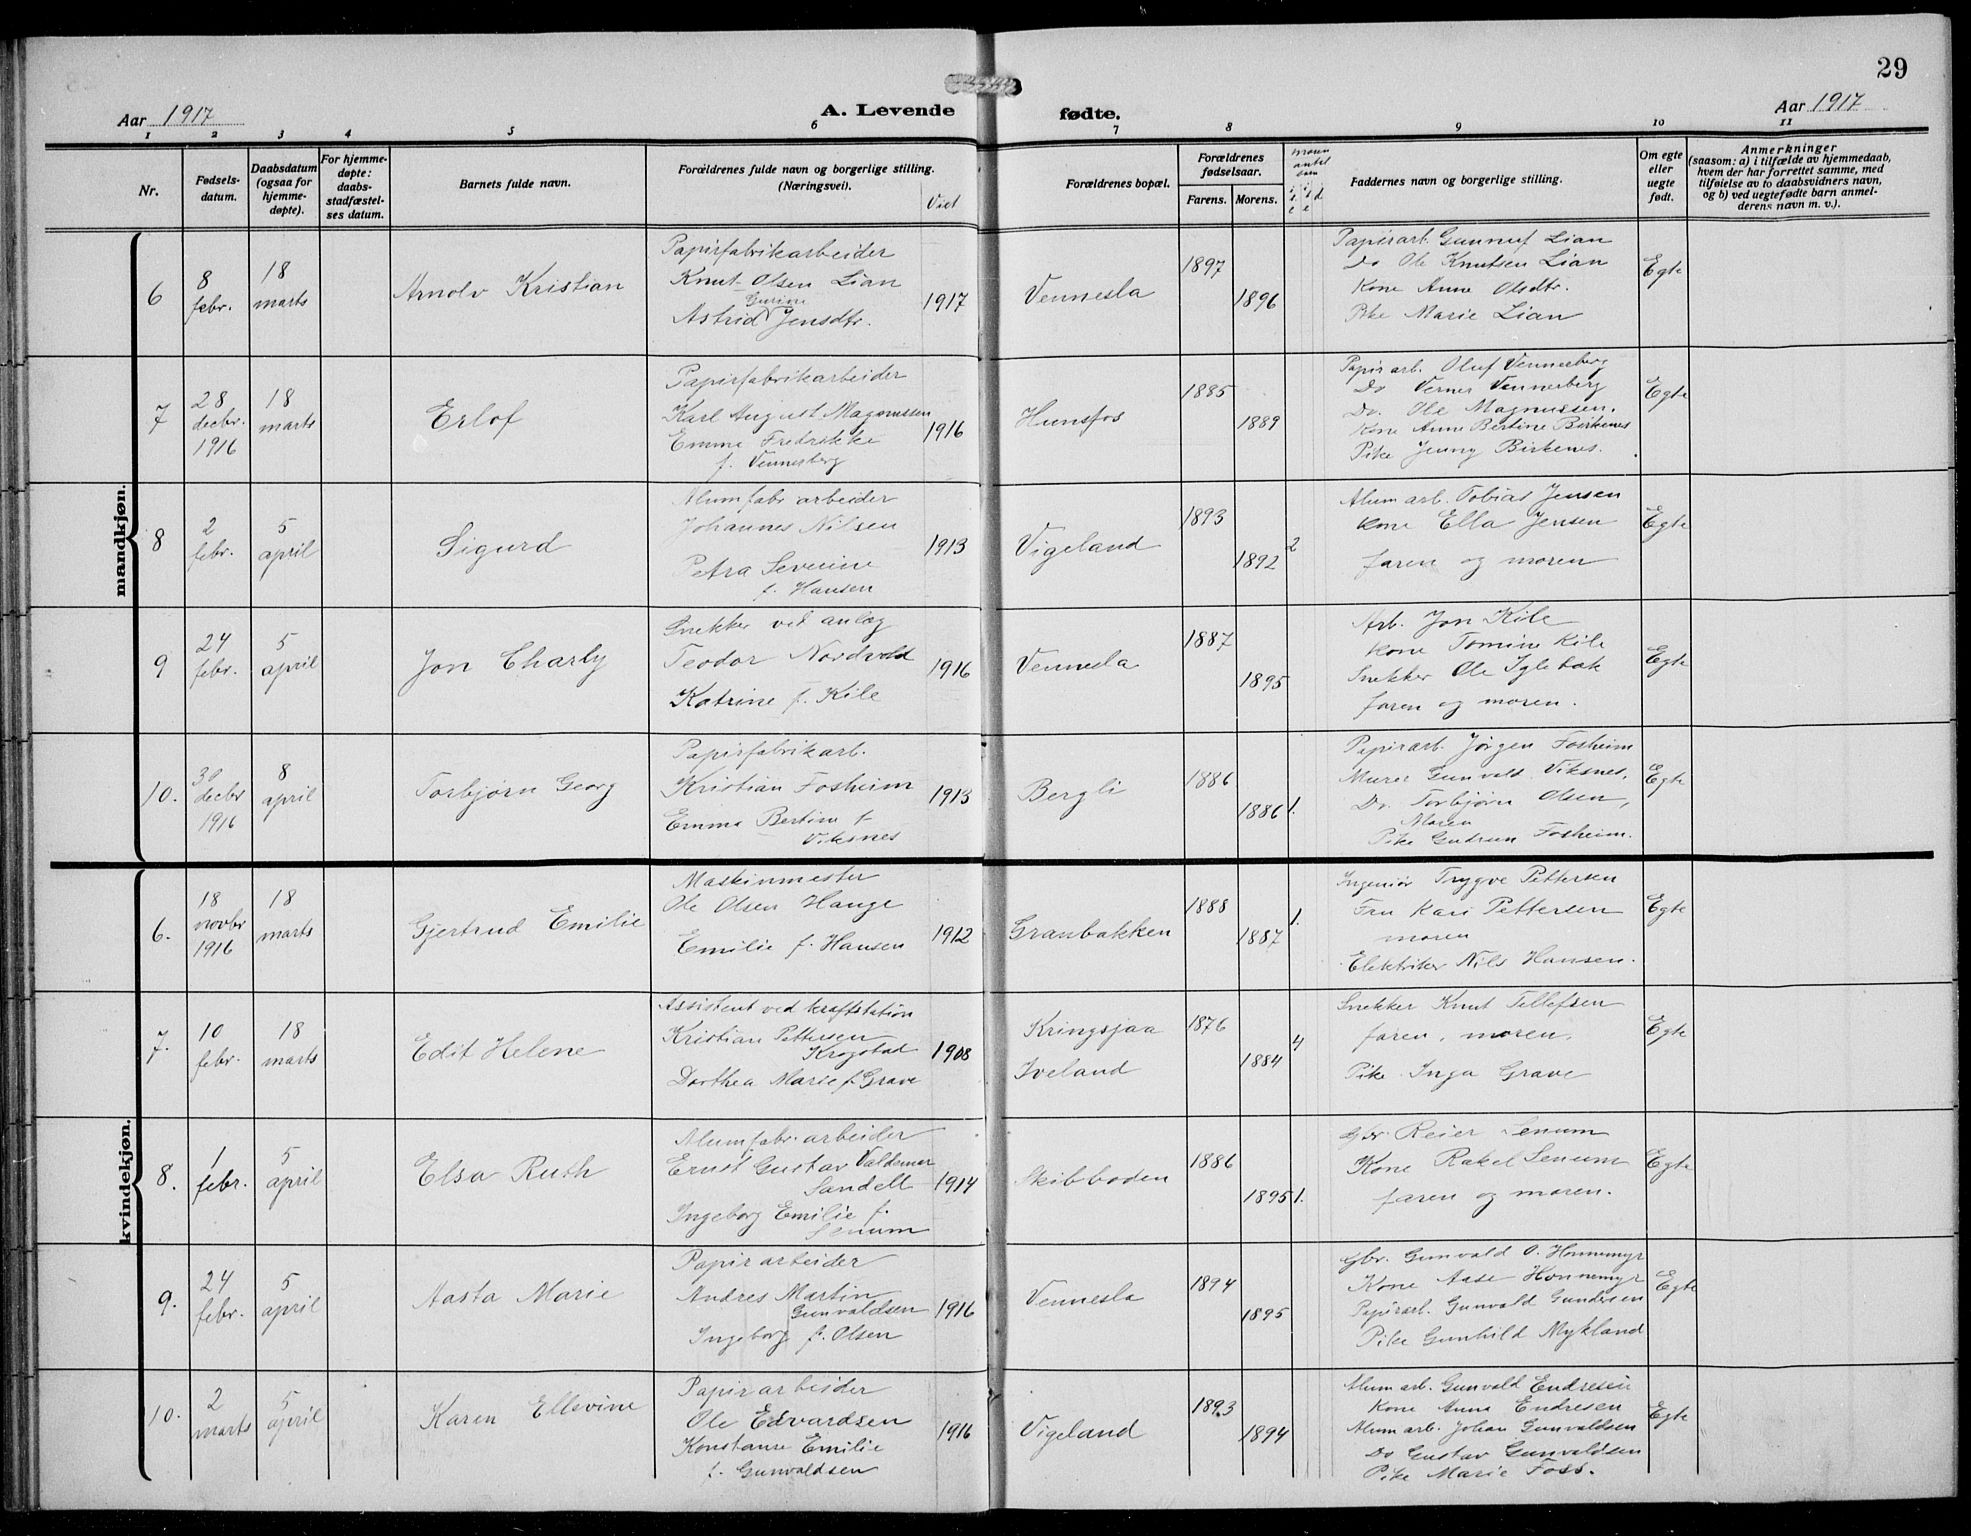 29
Aar 1917
A. Levende fødte.
Aar 1917
1 2 3 4 5 6 7 8 9 10 11
Nr.
Fødsels-
datum.
Daabsdatum
(ogsaa for
hjemme-
døpte).
For hjemme-
døpte:
daabs-
stadfæstel-
ses datum.
Barnets fulde navn.
Forældrenes fulde navn og borgerlige stilling.
(Næringsvei).
Viet
Forældrenes bopæl.
Forældrenes
fødselsaar.
Farens. Morens.
Faddernes navn og borgerlige stilling.
Om egte
eller
uegte
født.
Anmerkninger
(saasom: a) i tilfælde av hjemmedaab,
hvem der har forrettet samme, med
tilføielse av to daabsvidners navn,
og b) ved uegtefødte barn anmel-
derens navn m. v.).
mandkjøn.
6
8
febr.
18
marts
Arnolv Kristian
Papirfabrikarbeider
Knut Olsen Lian
Gurine
Astrid Jensdtr.
1917
Vennesla
1897
1896
Papirarb. Gunnuf Lian
Do Ole Knutsen Lian
Kone Anne Olsdtr.
Pke Marie Lian
Egte
7
28
decbr.
1916
18
marts
Erlof
Papirfabrikarbeider
Karl August Magnussen
Emma Fredrikke
f. Vennesberg
1916
Hunsfos
1885
1889
Papirarb. Oluf Venneberg
Do Verner Vennerberg
Do. Ole Magnussen.
Kone Anne Bertine Birkenes
Pike Jenny Birkenes.
Egte
8
2
febr.
5
april
Sigurd
Alumfabr arbeider
Johannes Nilsen
Petra Severine
f. Hansen
1913
Vigeland
1893
1892
2
Alum arb. Tobias Jensen
Kone Ella Jensen
faren og moren
Egte
9
24
febr.
5
april
Jon Charly
Snekker ved anlæg
Teodor Nordvold
Katrine f. Kile
1916
Vennesla
1887
1895
Arb. Jon Kile
Kone Tomine Kile
Snekker Ole Iglebæk
faren og moren.
Egte
10.
30
decbr
1916
8
april
Torbjørn Georg
Papirfabrikarb.
Kristian Fosheim
Emma Bertine f.
Viksnes
1913
Bergli
1886
1886
1.
Papirarb. Jørgen Fosheim
Murer Gunvald Viksnes.
Do. Torbjørn Olsen,
Moren
Pike Gudrun Fosheim.
Egte
kvindekjøn.
6.
18
novbr
1916
18
marts
Gjertrud Emilie
Maskinmester
Ole Olsen Hauge
Emilie f. Hansen
1912
Granbakken
1888
1887
1.
Ingeniør Trygve Pettersen
Fru Kari Pettersen
moren
Elektriker Nils Hansen.
Egte
7.
10
febr.
18
marts
Edit Helene
Assistent ved kraftstation
Kristian Pettersen
Krogstad
Dorthea Marie f. Grave
1908
Kringsjaa
Iveland
1876
1884
4
Snekker Knut Tellefsen
faren, moren,
Pike Inga Grave
Egte
8.
1
febr.
5
april
Elsa Ruth
Alumfabr. arbeider
Ernst Gustav Valdemar
Sandell
Ingeborg Emilie f.
Senum
1914
Skibboden
1886
1895
1.
Gbr. Reier Senum
Kone Rakel Senum
faren og moren.
Egte
9.
24
febr.
5
april
Aasta Marie
Papirarbeider
Andres Martin
Gunvaldsen
Ingeborg f. Olsen
1916
Vennesla
1894
1895
Gbr. Gunvald O. Honnemyr
Kone Aase Honnemyr
Papirarb. Gunvald Gundersen
Pike Gunhild Mykland
Egte
10.
2
marts
5
april
Karen Ellevine
Papirarbeider
Ole Edvardsen
Konstanse Emilie
f. Gunvaldsen
1916
Vigeland
1893
1894
Alum arb. Gunvald Endresen
Kone Anna Endresen
Alum arb. Johan Gunvaldsen
Do Gustav Gunvaldsen
Pike Marie Foss.
Egte